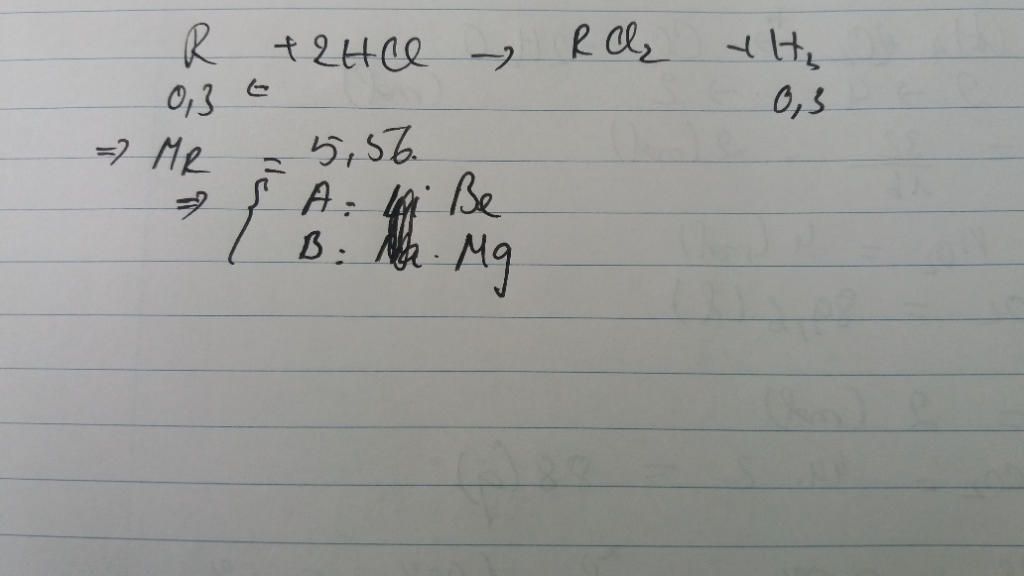 R + 2HCl → RCl₂ + H₂
0,3 ← 0,3
⇒ MR = 5,56.
⇒ { A: Be
B: Mg